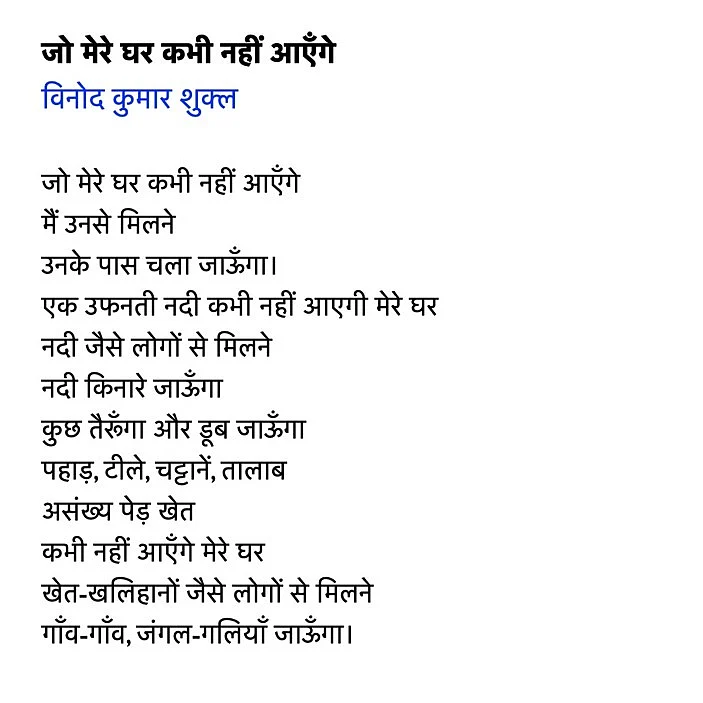 जो मेरे घर कभी नहीं आएँगे
विनोद कुमार शुक्ल
जो मेरे घर कभी नहीं आएँगे
मैं उनसे मिलने
उनके पास चला जाऊँगा।
एक उफनती नदी कभी नहीं आएगी मेरे घर
नदी जैसे लोगों से मिलने
नदी किनारे जाऊँगा
कुछ तैरूँगा और डूब जाऊँगा
पहाड़, टीले, चट्टानें, तालाब
असंख्य पेड़ खेत
कभी नहीं आएँगे मेरे घर
खेत-खलिहानों जैसे लोगों से मिलने
गाँव-गाँव, जंगल-गलियाँ जाऊँगा।